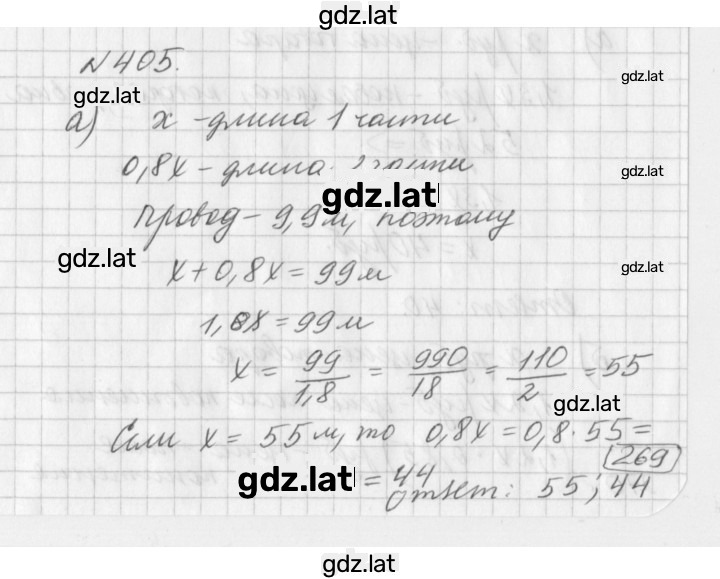 gdz.lat
№405.
gdz.lat
gdz.lat
а) x - длина 1 части
0,8x - длина 2 части
gdz.lat
gdz.lat
провод - 9,9м, поэтому
gdz.lat
x + 0,8x = 99м
gdz.lat
1,8x = 99м
x = 99/1,8 = 990/18 = 110/2 = 55
gdz.lat
Если x = 55м, то 0,8x = 0,8·55 =
269
gdz.lat = 44
Ответ: 55; 44
gdz.lat